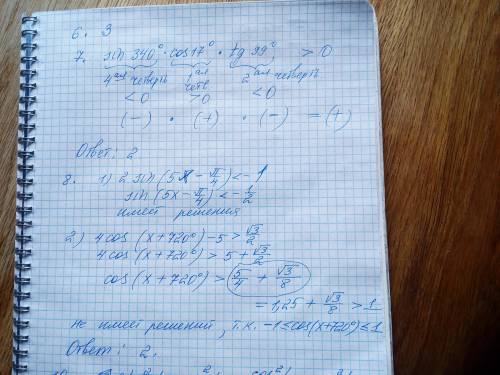 6. 3
7. sin 340° · cos 17° · tg 99° > 0
4ая четверть 1ая четв 2ая четверть
<0 >0 <0
(-) · (+) · (-) = (+)
Ответ: 2
8. 1) 2 sin (5x - π/4) < -1
sin (5x - π/4) < -1/2
имеет решения
2) 4 cos (x + 720°) - 5 > √3/2
4 cos (x + 720°) > 5 + √3/2
cos (x + 720°) > 5/4 + √3/8
= 1,25 + √3/8 > 1
не имеет решений, т.к. -1 ≤ cos(x+720°) ≤ 1
Ответ: 2.